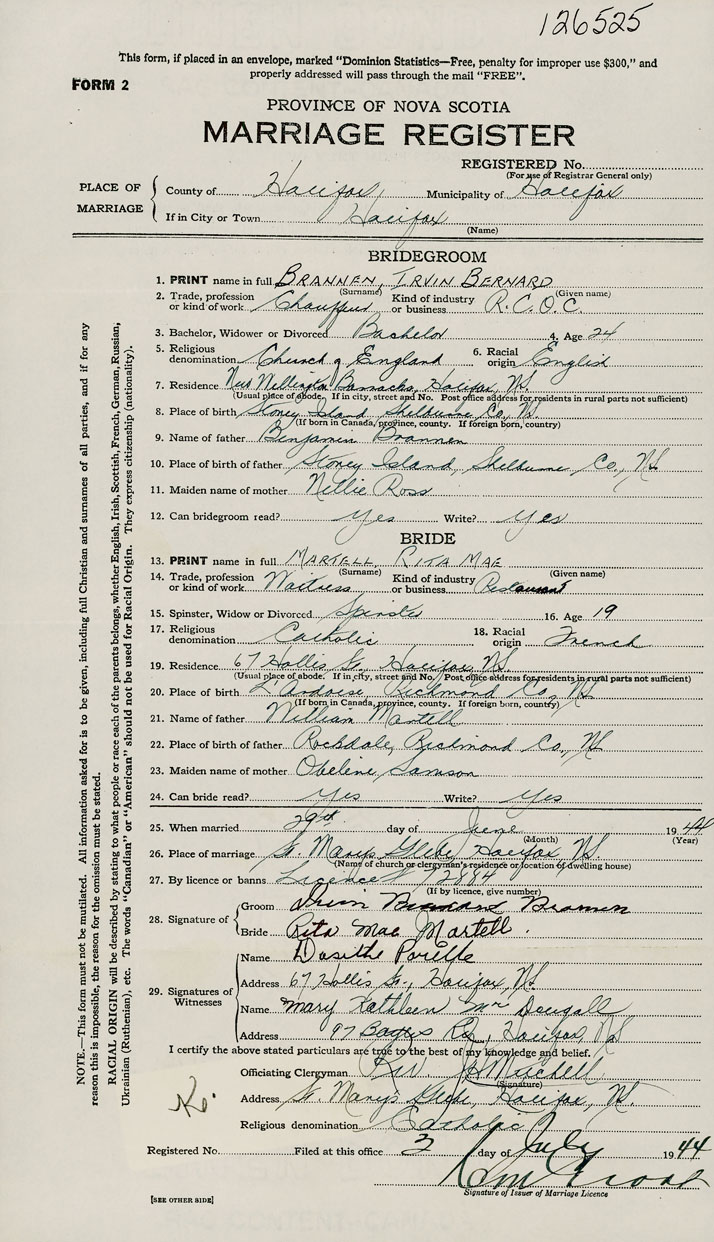 126525
This form, if placed in an envelope, marked "Dominion Statistics—Free, penalty for improper use $300," and
properly addressed will pass through the mail "FREE".
FORM 2
PROVINCE OF NOVA SCOTIA
MARRIAGE REGISTER
REGISTERED No.
(For use of Registrar General only)
PLACE OF MARRIAGE
County of Halifax, Municipality of Halifax
If in City or Town Halifax
(Name)
BRIDEGROOM
1. PRINT name in full BRANNEN, IRVIN BERNARD
(Surname) (Given name)
2. Trade, profession or kind of work Chauffeur Kind of industry or business R.C.O.C.
3. Bachelor, Widower or Divorced Bachelor 4. Age 24
5. Religious denomination Church of England 6. Racial origin English
7. Residence Wellington Barracks, Halifax, N.S.
(Usual place of abode. If in city, street and No. Post office address for residents in rural parts not sufficient)
8. Place of birth Stoney Island, Shelburne Co., N.S.
(If born in Canada, province, county. If foreign born, country)
9. Name of father Benjamin Brannen
10. Place of birth of father Stoney Island, Shelburne Co., N.S.
11. Maiden name of mother Nellie Ross
12. Can bridegroom read? Yes Write? Yes
BRIDE
13. PRINT name in full MARTELL, RITA MAE
(Surname) (Given name)
14. Trade, profession or kind of work Waitress Kind of industry or business Restaurant
15. Spinster, Widow or Divorced Spinster 16. Age 19
17. Religious denomination Catholic 18. Racial origin French
19. Residence 67 Hollis St., Halifax, N.S.
(Usual place of abode. If in city, street and No. Post office address for residents in rural parts not sufficient)
20. Place of birth L'Ardoise, Richmond Co., N.S.
(If born in Canada, province, county. If foreign born, country)
21. Name of father William Martell
22. Place of birth of father Rockdale, Richmond Co., N.S.
23. Maiden name of mother Obeline Samson
24. Can bride read? Yes Write? Yes
25. When married 29th day of June 1944
(Month) (Year)
26. Place of marriage St. Mary's Glebe, Halifax, N.S.
(Name of church or clergyman's residence or location of dwelling house)
27. By licence or banns Licence
(If by licence, give number)
28. Signature of
Groom Irvin Bernard Brannen
Bride Rita Mae Martell.
29. Signatures of Witnesses
Name Dosithe
Address 67 Hollis St., Halifax, N.S.
Name Mary Kathleen McDougall
Address 97 Rd., Halifax, N.S.
I certify the above stated particulars are true to the best of my knowledge and belief.
Officiating Clergyman Rev Mitchell
(Signature)
Address St. Mary's Glebe, Halifax, N.S.
Religious denomination Catholic
Registered No. Filed at this office 3 day of July 1944
Signature of Issuer of Marriage Licence
[SEE OTHER SIDE]
NOTE.—This form must not be mutilated. All information asked for is to be given, including full Christian and surnames of all parties, and if for any
reason this is impossible, the reason for the omission must be stated.
RACIAL ORIGIN will be described by stating to what people or race each of the parents belongs, whether English, Irish, Scottish, French, German, Russian,
Ukrainian (Ruthenian), etc. The words "Canadian" or "American" should not be used for Racial Origin. They express citizenship (nationality).